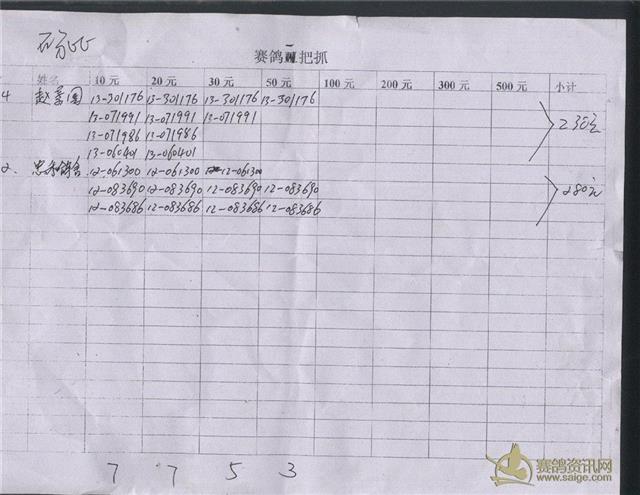 赛鸽 把抓
姓名 10元 20元 30元 50元 100元 200元 300元 500元 小计
13-301176 13-301176 13-301176 13-301176
13-071991 13-071991 13-071991 230元
13-071986 13-071986
13-060401 13-060401
2、 12-061300 12-061300 12-061300
12-083690 12-083690 12-083690 12-083690 280元
12-083686 12-083686 12-083686 12-083686
7 7 5 3
赛鸽资讯网
www.saige.com